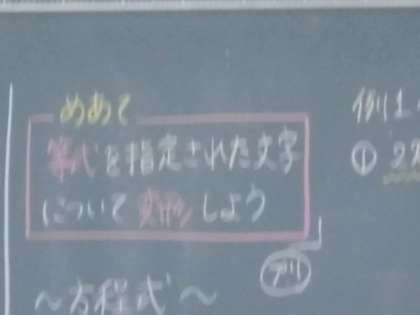 めあて
等式を指定された文字
について変形しよう
デリ
〜方程式〜
例1
①